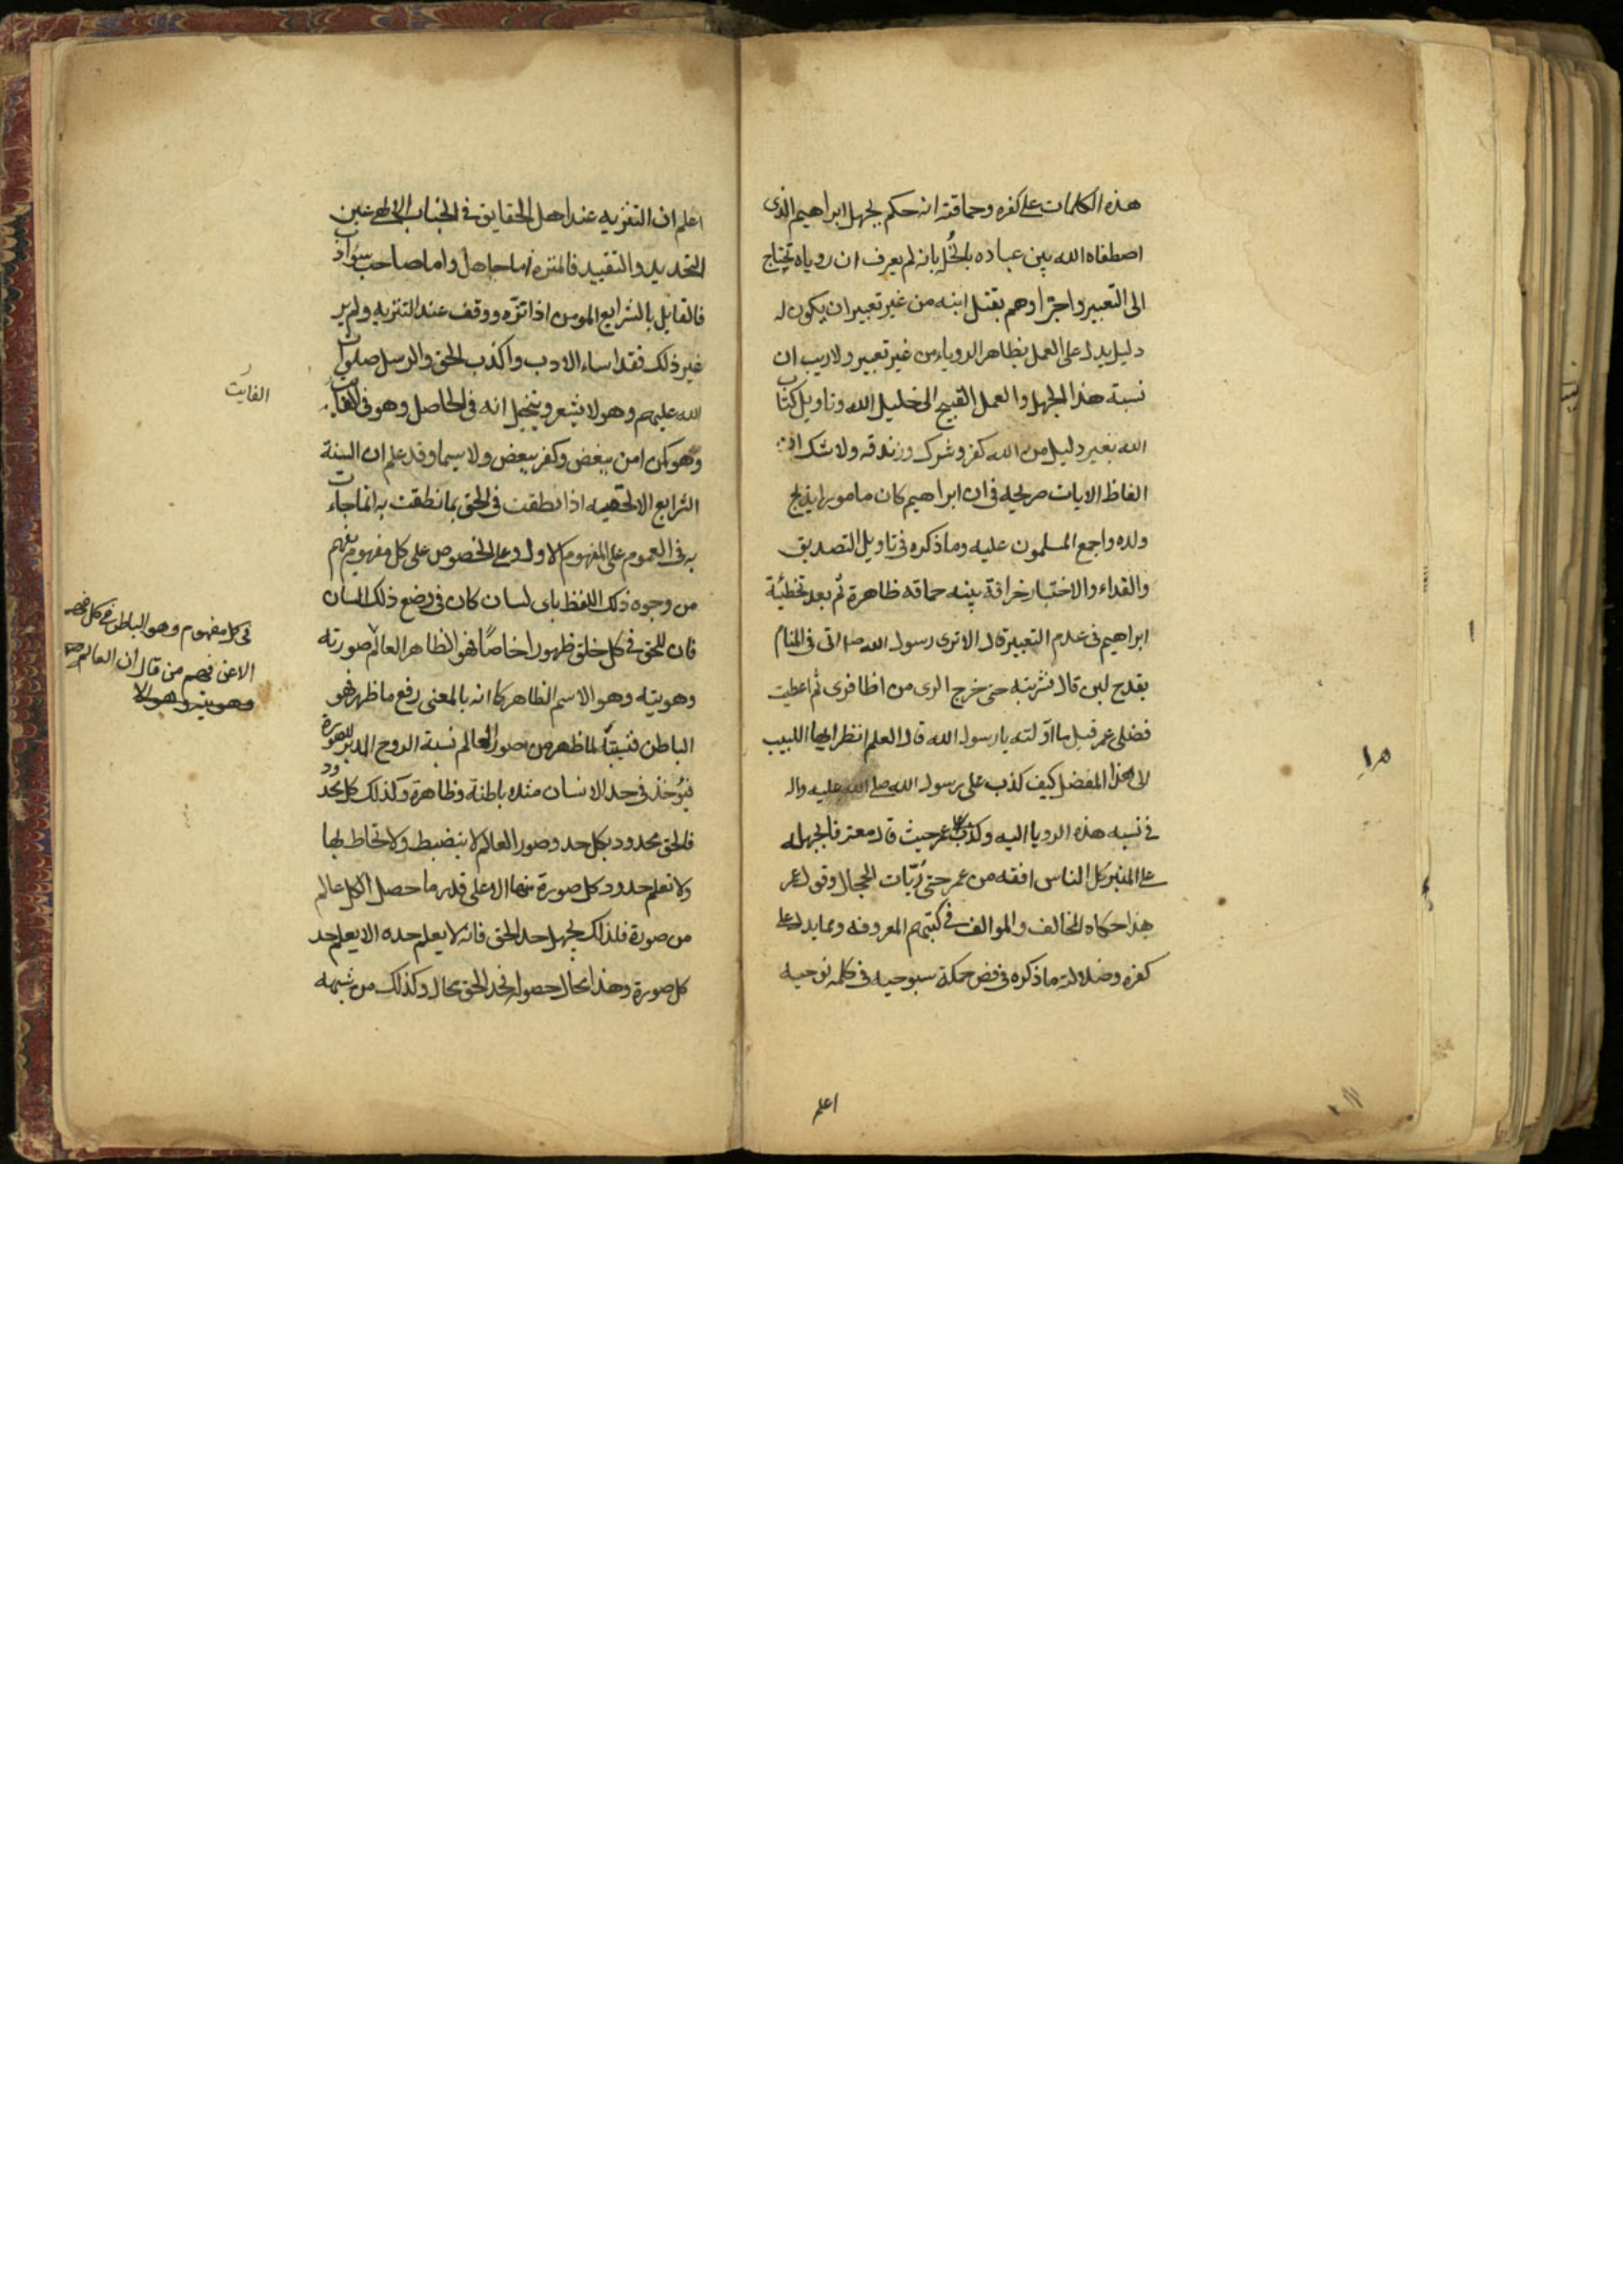 هذه الكلمات على كفره وحماقته انه حكم بجهل ابراهيم الذى
اصطفاه الله بين عباده بالخُل بانه لم يعرف ان روياه تحتاج
الى التعبير واجترا وهم بقتل ابنه من غير تعبير ان يكون له
دليل يدل على العمل بظاهر الروياء من غير تعبير ولا ريب ان
نسبة هذا الجهل والعمل القبيح الى خليل الله وتاويل كتاب
الله بغير دليل من الله كفر وشرك وزندقه ولا شك ان
الفاظ الايات صريحه فى ان ابراهيم كان مامورا بذبح
ولده واجمع المسلمون عليه وما ذكره فى تاويل التصديق
والفداء والاختبار خرافة بينه حماقه ظاهرة ثم بعد تخطئة
ابراهيم فى عدم التعبير قال الا ترى رسول الله صلى اتى فى المنام
بقدح لبن قال فشربته حتى خرج الرى من اظافرى ثم اعطيت
فضلى عمر قيل ما اولته يا رسول الله قال العلم انظر ايها اللبيب
لى هذا المفضل كيف كذب على رسول الله صلى الله عليه واله
فى نسبه هذه الرويا اليه وكذب عمر حيث قال معترفا بجهله
على المنبر كل الناس افقه من عمر حتى ربّات الحجال وقول عمر
هذا حكاه المخالف والموالف فى كتبهم المعروفه ومما يدل على
كفره وضلالته ما ذكره فى فص حكمة سبوحيه فى كلمه نوحيه
اعلم
اعلم ان التنزيه عند اهل الحقايق فى الجناب الالهى عين
التحديد والتقييد فالمنزه اما جاهل واما صاحب سوء ادب
فالقايل بالشرايع المومن اذا نزّه ووقف عند التنزيه ولم ير
غير ذلك فقد اساء الادب واكذب الحق والرسل صلوات
الله عليهم وهو لا يشعر ويتخيل انه فى الحاصل وهو فى الفايت
وهو كمن امن ببعض وكفر ببعض ولا سيما وقد علم ان السنة
الشرايع الالهيه اذا نطقت فى الحق بما نطقت به انما جاءت
به فى العموم على المفهوم الاول وعلى الخصوص على كل مفهوم يفهم
من وجوه ذلك اللفظ باى لسان كان فى وضع ذلك اللسان
فان للحق فى كل خلق ظهورا خاصاً فهو الظاهر العالم صورته
وهويته وهو الاسم الظاهر كما انه بالمعنى رفع ما ظهر فهو
الباطن فنسبته لما ظهر من صور العالم نسبة الروح المدبر للصورة
فيُوخذ فى حد الانسان مثلا باطنة وظاهرة وكذلك كل محدود
فالحق محدود بكل حد وصور العالم لا ينضبط ولا تحاط بها
ولا تعلم حدود كل صورة منها الا على قدر ما حصل الكل عالم
من صورة فلذلك يجهل حد الحق فانه لا يعلم حده الا يعلم حد
كل صورة وهذا محال حصوله فحد الحق محال وكذلك من شبهه
الفايت
فى كل مفهوم وهو الباطن عن كل فهم
الا عن فهم من قال ان العالم
وهويته وهو الا